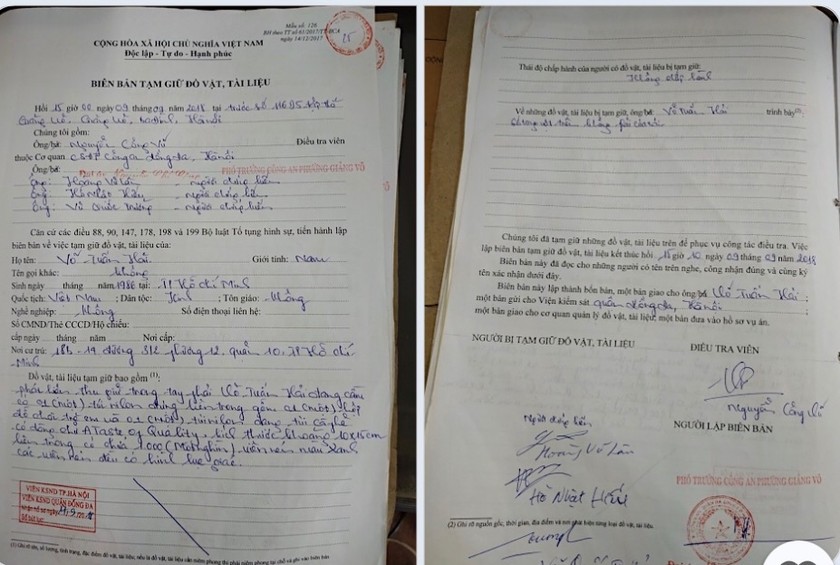 Mẫu số: 126
BH theo TT số 61/2017/TT-BCA
ngày 14/12/2017
25
CỘNG HÒA XÃ HỘI CHỦ NGHĨA VIỆT NAM
Độc lập - Tự do - Hạnh phúc
BIÊN BẢN TẠM GIỮ ĐỒ VẬT, TÀI LIỆU
Hồi 15 giờ 00 ngày 09 tháng 09 năm 2018 tại trước số
Giảng Võ, Giảng Võ, Ba Đình, Hà Nội
Chúng tôi gồm:
Ông/bà: Nguyễn Công Vũ Điều tra viên
thuộc Cơ quan CSĐT Công an Đống Đa, Hà Nội
Ông/bà: PHÓ TRƯỞNG CÔNG AN PHƯỜNG GIẢNG VÕ
Ông: Hoàng Võ Lân - người chứng kiến
Ông: Hồ Nhật Hiếu - người chứng kiến
Ông: Vũ Quốc - người chứng kiến
Căn cứ các điều 88, 90, 147, 178, 198 và 199 Bộ luật Tố tụng hình sự, tiến hành lập
biên bản về việc tạm giữ đồ vật, tài liệu của:
Họ tên: Võ Tuấn Hải Giới tính: Nam
Tên gọi khác: không
Sinh ngày tháng năm 1986 tại: TP Hồ Chí Minh
Quốc tịch: Việt Nam; Dân tộc: Kinh; Tôn giáo: không
Nghề nghiệp: không Số điện thoại liên hệ:
Số CMND/Thẻ CCCD/Hộ chiếu:
cấp ngày tháng năm Nơi cấp:
Nơi cư trú: 185-19 đường 3/2 phường 12, quận 10, TP Hồ Chí
Minh
Đồ vật, tài liệu tạm giữ bao gồm (1):
phát hiện thu giữ trong tay phải Võ Tuấn Hải đang cầm
01 (một) túi nilon đựng bên trong gồm 01 (một) hộp
đồ chơi trẻ em và 01 (một) túi nilon dạng túi cà phê
có dòng chữ A Taste of Quality, kích thước khoảng 10x15cm
bên trong có chứa 1000 (Một nghìn) viên nén màu xanh
các viên nén đều có hình lục giác.
VIỆN KSND TP.HÀ NỘI
VIỆN KSND QUẬN ĐỐNG ĐA
Thái độ chấp hành của người có đồ vật, tài liệu bị tạm giữ:
Không chấp hành
Về những đồ vật, tài liệu bị tạm giữ, ông/bà Võ Tuấn Hải trình bày (2):
Chúng tôi đã tạm giữ những đồ vật, tài liệu trên để phục vụ công tác điều tra. Việc
lập biên bản tạm giữ đồ vật, tài liệu kết thúc hồi 15 giờ 10 ngày 09 tháng 09 năm 2018
Biên bản này đã đọc cho những người có tên trên nghe, công nhận đúng và cùng ký
tên xác nhận dưới đây.
Biên bản này lập thành bốn bản, một bản giao cho ông/bà Võ Tuấn Hải;
một bản gửi cho Viện kiểm sát quận Đống Đa, Hà Nội;
một bản giao cho cơ quan quản lý đồ vật, tài liệu, một bản đưa vào hồ sơ vụ án.
NGƯỜI BỊ TẠM GIỮ ĐỒ VẬT, TÀI LIỆU
ĐIỀU TRA VIÊN
Nguyễn Công Vũ
NGƯỜI LẬP BIÊN BẢN
Người chứng kiến
Hoàng Võ Lân
Hồ Nhật Hiếu
PHÓ TRƯỞNG CÔNG AN PHƯỜNG GIẢNG VÕ
(2) Ghi rõ nguồn gốc, thời gian, địa điểm và nơi phát hiện từng loại đồ vật, tài liệu.